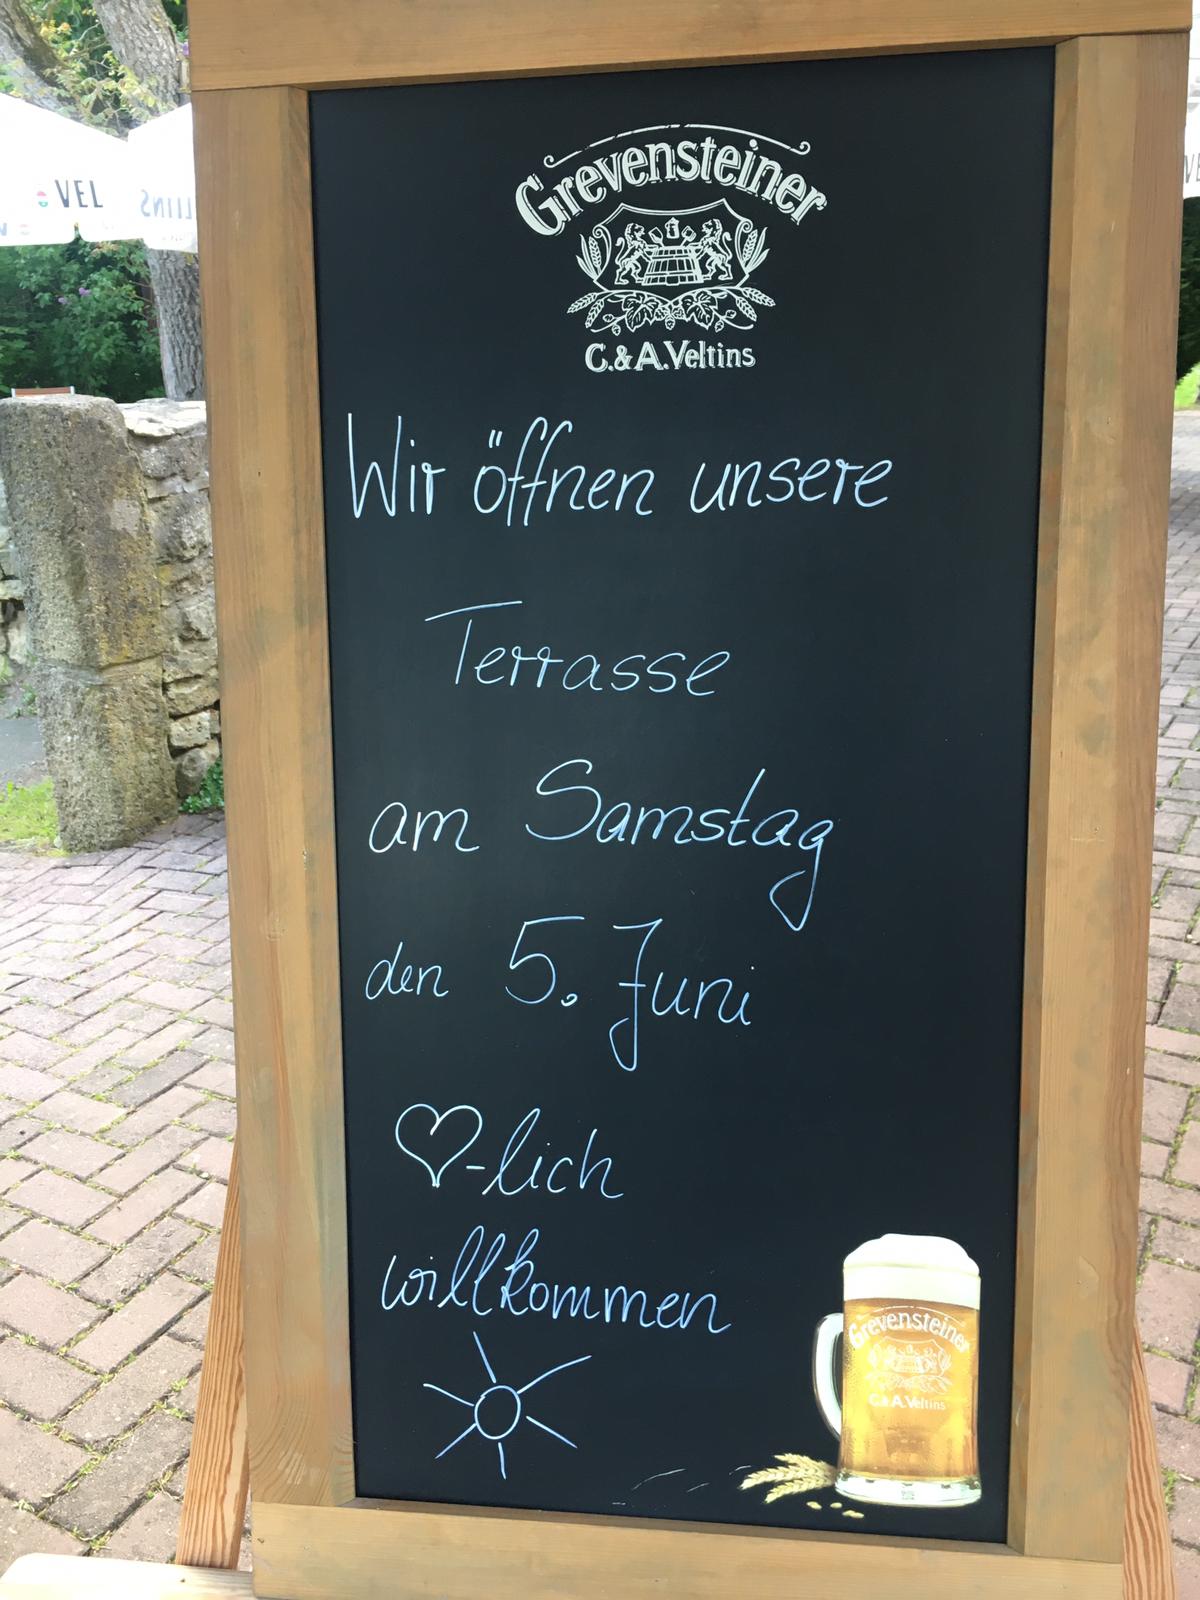 Grevensteiner
C.&A.Veltins
Wir öffnen unsere
Terrasse
am Samstag
den 5. Juni
♡-lich
willkommen
Grevensteiner
C.&A.Veltins
VEL